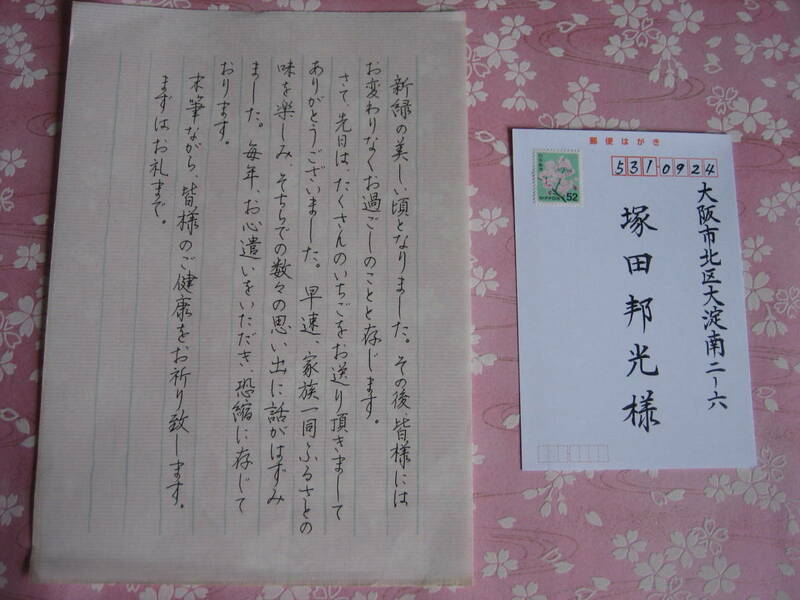 新緑の美しい頃となりました。その後皆様には
お変わりなくお過ごしのことと存じます。
さて、先日は、たくさんのいちごをお送り頂きまして
ありがとうございました。早速、家族一同ふるさとの
味を楽しみ、そちらでの数々の思い出に話がはずみ
ました。毎年、お心遣いをいただき、恐縮に存じて
おります。
末筆ながら、皆様のご健康をお祈り致します。
まずはお礼まで。
郵便はがき
5310924
日本郵便
NIPPON 52
大阪市北区大淀南二ー六
塚田邦光様